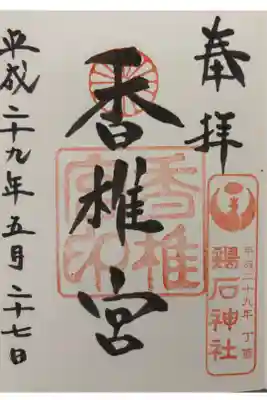 奉拝
香椎宮
香椎宮印
平成二十九年丁酉
鶏石神社
平成二十九年五月二十七日